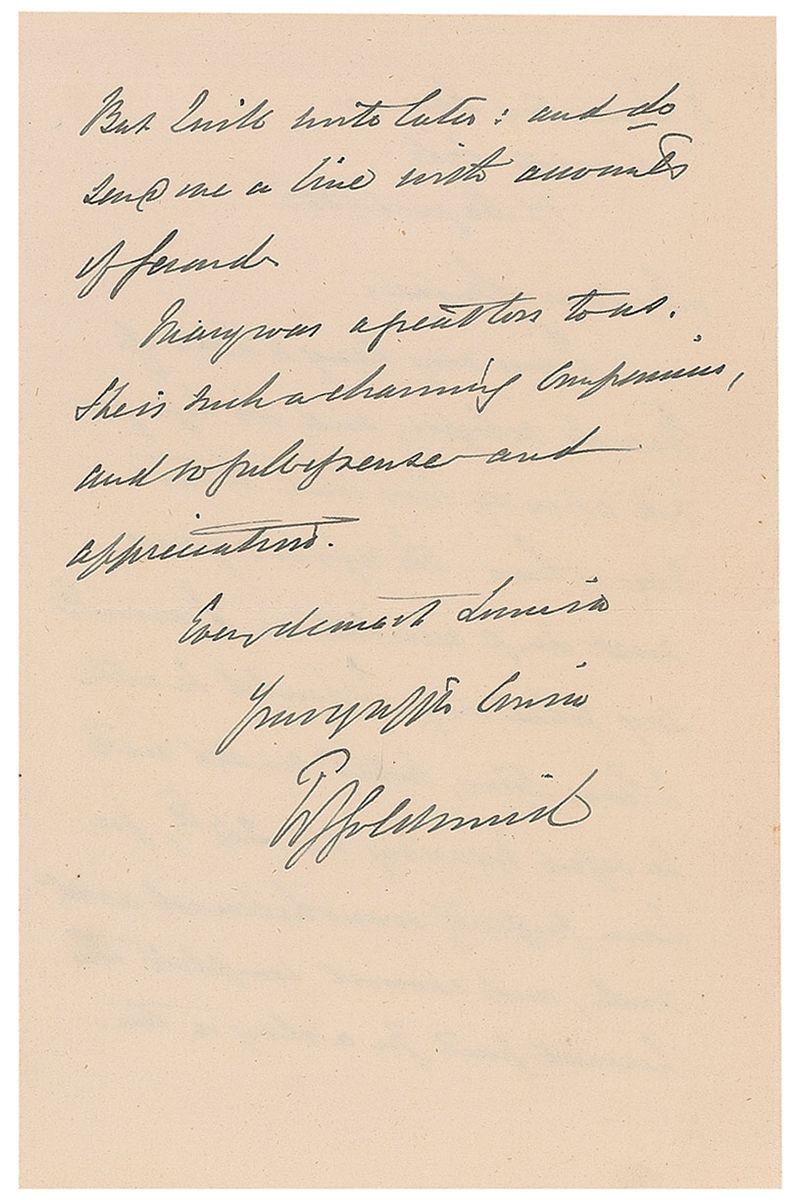 But I will write later : and do
send me a line with accounts
of
Mary was a great loss to us.
She is such a charming companion,
and so full of sense and
appreciation.
Ever dearest Louisa
Your afft
Goldsmid